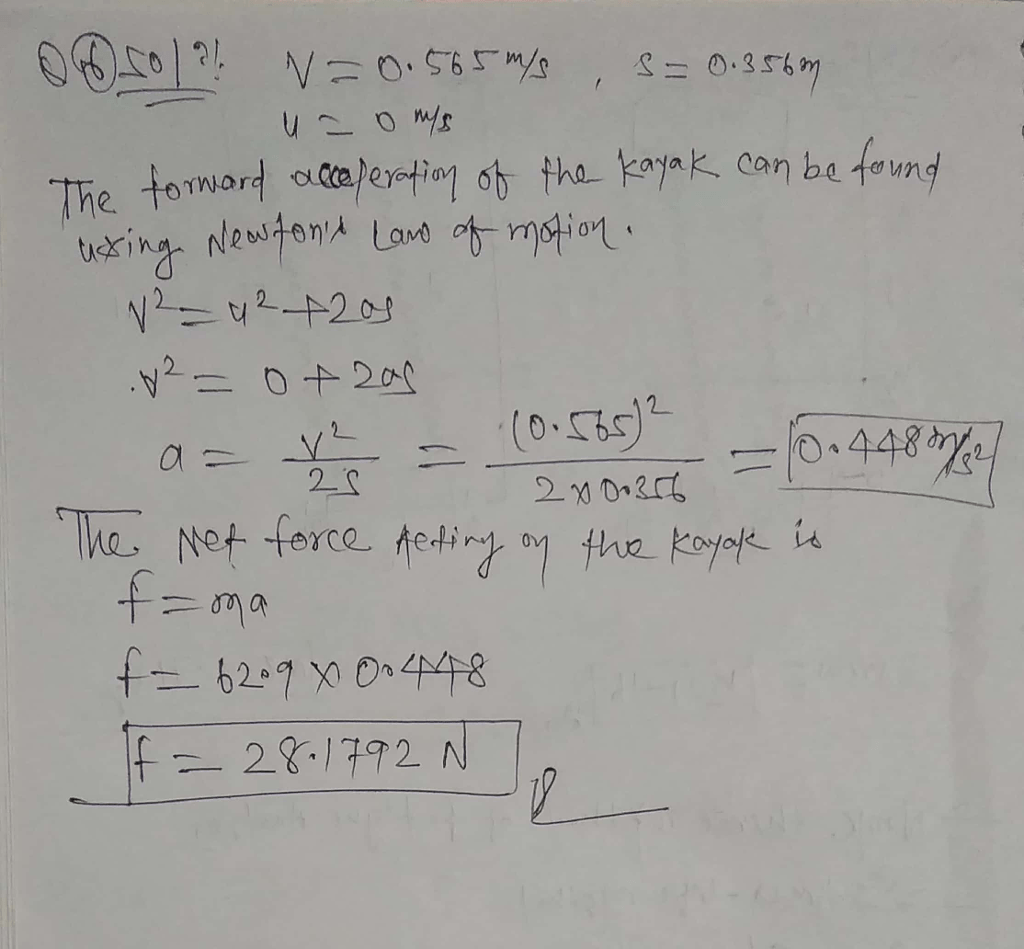 Q⑥ sol? V = 0.565 m/s , S = 0.356 m
u = 0 m/s
The forward acceleration of the kayak can be found
using Newton's Law of motion.
v² = u² + 2as
v² = 0 + 2as
a = v²/2s = (0.565)²/2×0.356 = 0.448 m/s²
The Net force Acting on the kayak is
f = ma
f = 62.9 × 0.448
f = 28.1792 N